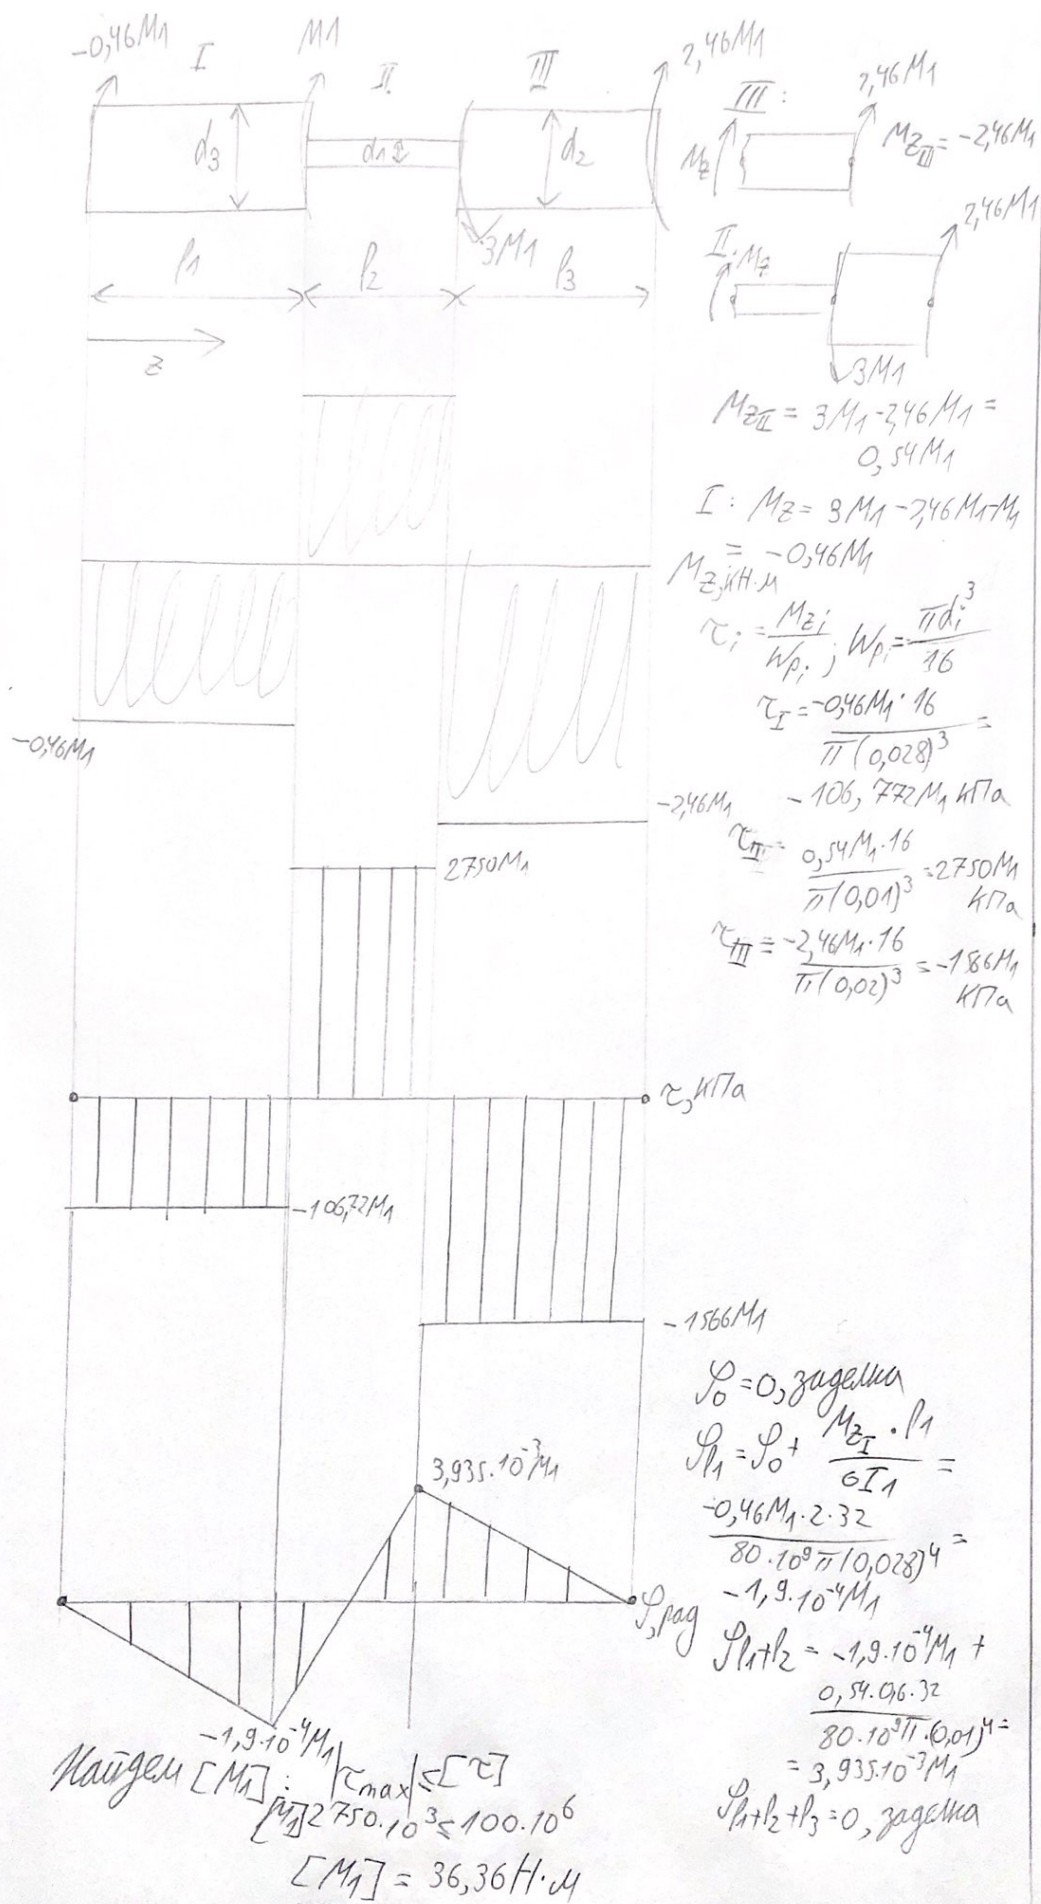 -0,46M1
I
M1
II
III
2,46M1
d3
d1
d2
3M1
l1
l2
l3
z
III:
2,46M1
Mz
MzIII = -2,46M1
2,46M1
II. Mz
3M1
MzII = 3M1 - 2,46M1 =
0,54M1
I: Mz = 3M1 - 2,46M1 - M1
= -0,46M1
Mz, кН·м
τi = Mzi / Wpi; Wpi = πdi³ / 16
τI = -0,46M1·16 / π(0,028)³ =
-106,772M1 кПа
τII = 0,54M1·16 / π(0,01)³ = 2750M1
кПа
τIII = -2,46M1·16 / π(0,02)³ = -1566M1
кПа
-0,46M1
-2,46M1
2750M1
τ, кПа
-106,72M1
-1566M1
φ0 = 0, заделка
φl1 = φ0 + MzI·l1 / GI1 =
-0,46M1·2·32 / 80·10⁹π(0,028)⁴ =
-1,9·10⁻⁴M1
φl1+l2 = -1,9·10⁻⁴M1 +
0,54·0,6·32 / 80·10⁹π·(0,01)⁴ =
= 3,935·10⁻³M1
φl1+l2+l3 = 0, заделка
3,935·10⁻³M1
φ, рад
-1,9·10⁻⁴M1
Найдем [M1]: |τmax| ≤ [τ]
[M1]2750·10³ ≤ 100·10⁶
[M1] = 36,36 Н·м